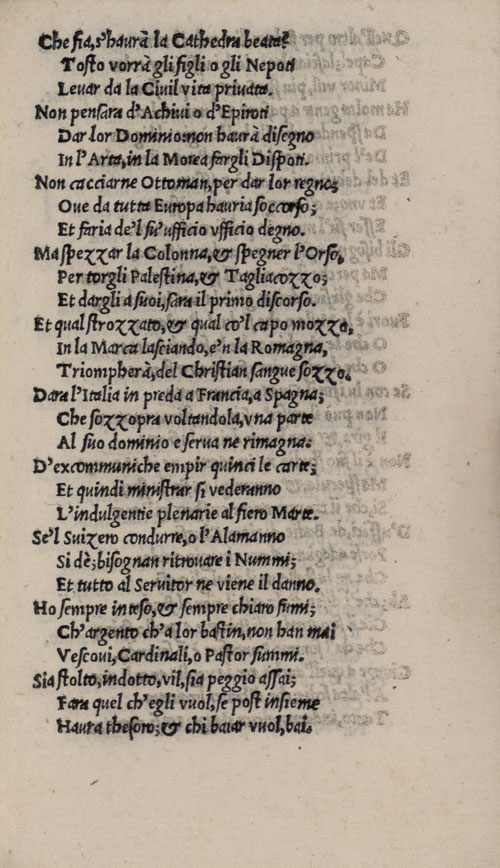 Che fia, s'haurà la Cathedra beata?
Tosto vorrà gli figli o gli Nepoti
Leuar da la Ciuil vita priuata.
Non pensara d'Achiui o d'Epiroti
Dar lor Dominio: non haurà disegno
In l'Arta, in la Morea fargli Dispoti.
Non cacciarne Ottoman, per dar lor regno;
Oue da tutta Europa hauria soccorso;
Et faria de'l su' ufficio vfficio degno.
Ma spezzar la Colonna, & spegner l'Orso,
Per torgli Palestina, & Tagliacozzo;
Et dargli a suoi, sara il primo discorso.
Et qual strozzato, & qual co'l capo mozzo,
In la Marca lasciando, e'n la Romagna,
Triompherà, del Christian sangue sozzo.
Dara l'Italia in preda a Francia, a Spagna;
Che sozzopra voltandola, vna parte
Al suo dominio e serua ne rimagna:
D'excommuniche empir quinci le carte;
Et quindi ministrar si vederanno
L'indulgentie plenarie al fiero Marte.
Se'l Suizero condurre, o l'Alamanno
Si dè; bisognan ritrouare i Nummi;
Et tutto al Seruitor ne viene il danno.
Ho sempre inteso, & sempre chiaro fumi;
Ch'argento ch'a lor bastin, non han mai
Vescoui, Cardinali, o Pastor summi.
Sia stolto, indotto, vil, sia peggio assai;
Fara quel ch'egli vuol, se post insieme
Haura thesoro; & chi baiar vuol, bai.